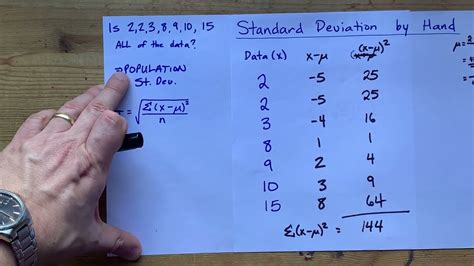 Is 2,2,3,8,9,10,15
ALL of the data?
⇒POPULATION
St. Dev.
= √Σ(x-μ)²/n
Standard Deviation by Hand
μ=
Data(x) x-μ (x-μ)²
2 -5 25
2 -5 25
3 -4 16
8 1 1
9 2 4
10 3 9
15 8 64
Σ(x-μ)² = 144